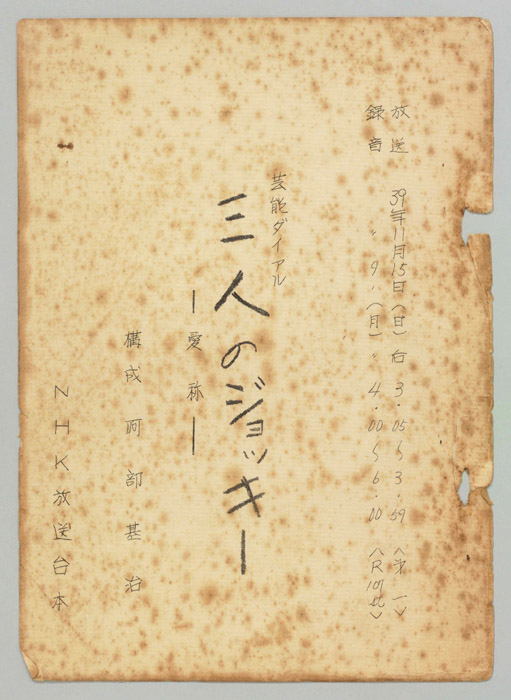 放送 39年11月15日(日)后3.05〜3.59〈第一〉
録音 〃9〃(月)〃4.00〜6.00〈R
芸能ダイアル
三人のジョッキー
―愛称―
構成 阿部基治
NHK放送台本